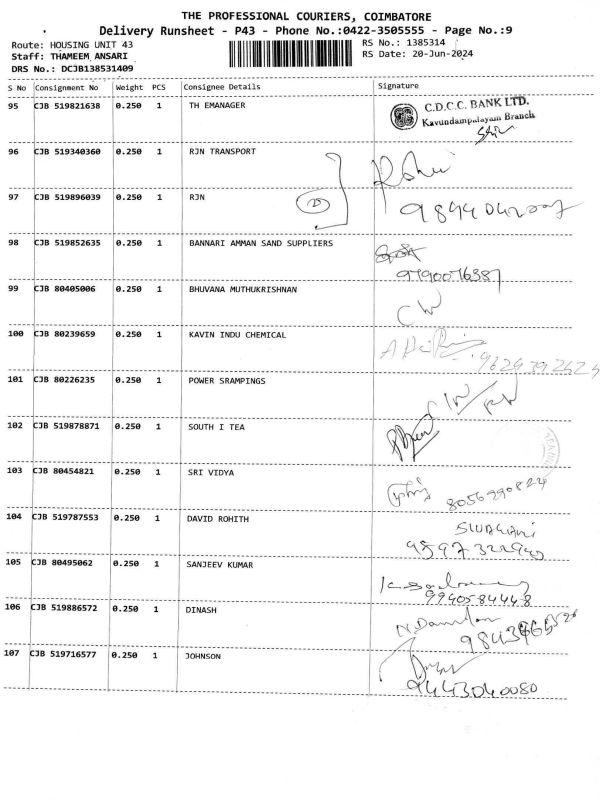 THE PROFESSIONAL COURIERS, COIMBATORE
Delivery Runsheet - P43 - Phone No.:0422-3505555 - Page No.:9
Route: HOUSING UNIT 43
RS No.: 1385314
Staff: THAMEEM ANSARI
RS Date: 20-Jun-2024
DRS No.: DCJB138531409
S No Consignment No Weight PCS Consignee Details Signature
95 CJB 519821638 0.250 1 TH EMANAGER
C.D.C.C. BANK LTD.
Kavundampalayam Branch
96 CJB 519340360 0.250 1 RJN TRANSPORT
97 CJB 519896039 0.250 1 RJN
98 CJB 519852635 0.250 1 BANNARI AMMAN SAND SUPPLIERS
9790076387
99 CJB 80405006 0.250 1 BHUVANA MUTHUKRISHNAN
100 CJB 80239659 0.250 1 KAVIN INDU CHEMICAL
101 CJB 80226235 0.250 1 POWER SRAMPINGS
102 CJB 519878871 0.250 1 SOUTH I TEA
103 CJB 80454821 0.250 1 SRI VIDYA
8056990824
104 CJB 519787553 0.250 1 DAVID ROHITH
9597322940
105 CJB 80495062 0.250 1 SANJEEV KUMAR
9940584448
106 CJB 519886572 0.250 1 DINASH
107 CJB 519716577 0.250 1 JOHNSON
9443040080